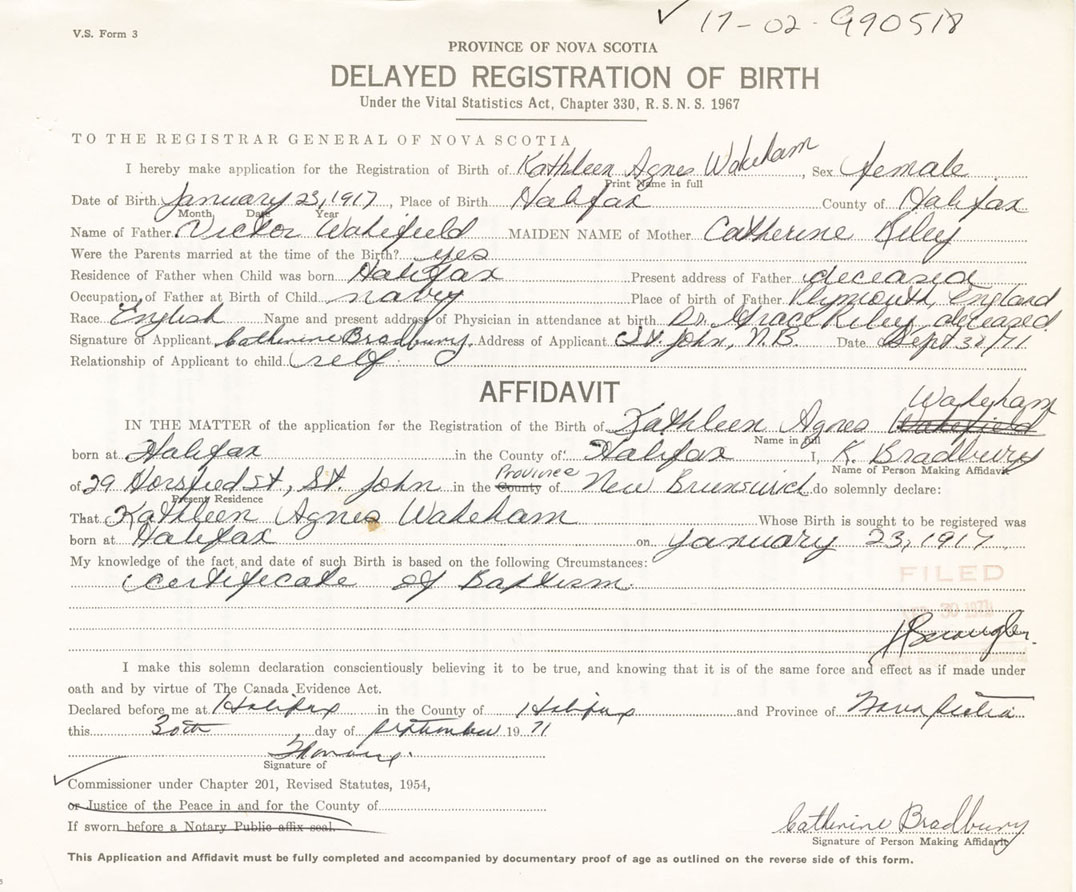 ✓ 17-02-990518
V.S. Form 3
PROVINCE OF NOVA SCOTIA
DELAYED REGISTRATION OF BIRTH
Under the Vital Statistics Act, Chapter 330, R.S.N.S. 1967
TO THE REGISTRAR GENERAL OF NOVA SCOTIA
I hereby make application for the Registration of Birth of Kathleen Agnes Wakeham, Sex female
Print Name in full
Date of Birth January 23, 1917, Place of Birth Halifax County of Halifax
Month Date Year
Name of Father Victor Wakefield MAIDEN NAME of Mother Catherine Riley
Were the Parents married at the time of the Birth? yes
Residence of Father when Child was born Halifax Present address of Father deceased
Occupation of Father at Birth of Child navy Place of birth of Father Plymouth, England
Race English Name and present address of Physician in attendance at birth Dr. Grace Riley, deceased
Signature of Applicant Catherine Bradbury Address of Applicant St. John, N.B. Date Sept 30/71
Relationship of Applicant to child self
AFFIDAVIT
Wakeham
IN THE MATTER of the application for the Registration of the Birth of Kathleen Agnes Wakefield
Name in full
born at Halifax in the County of Halifax I, K. Bradbury
Name of Person Making Affidavit
Province
of 29 Horsfied St, St. John in the County of New Brunswick do solemnly declare:
Present Residence
That Kathleen Agnes Wakeham Whose Birth is sought to be registered was
born at Halifax on January 23, 1917
My knowledge of the fact and date of such Birth is based on the following Circumstances:
certificate of Baptism.
FILED
30 1971
I make this solemn declaration conscientiously believing it to be true, and knowing that it is of the same force and effect as if made under
oath and by virtue of The Canada Evidence Act.
Declared before me at Halifax in the County of Halifax and Province of Nova Scotia
this 30th day of September 19 71
Signature of
✓ Commissioner under Chapter 201, Revised Statutes, 1954,
or Justice of the Peace in and for the County of
If sworn before a Notary Public affix seal.
Catherine Bradbury
Signature of Person Making Affidavit
This Application and Affidavit must be fully completed and accompanied by documentary proof of age as outlined on the reverse side of this form.